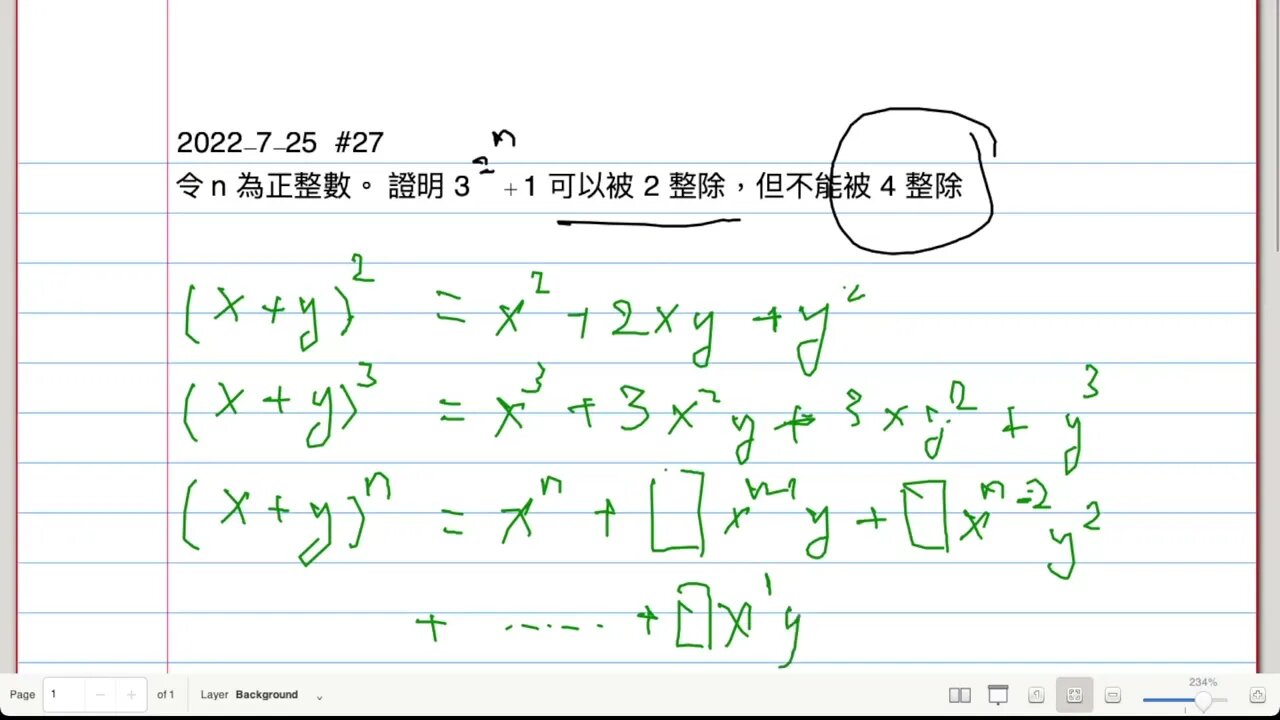 2022-7-25 #27
令 n 為正整數。 證明 3^2^n +1 可以被 2 整除，但不能被 4 整除
(x+y)^2 = x^2 + 2xy + y^2
(x+y)^3 = x^3 + 3x^2y + 3xy^2 + y^3
(x+y)^n = x^n + □x^n-1y + □x^n-2y^2
+ ...... + □x^1y
Page 1 of 1 Layer Background 234%